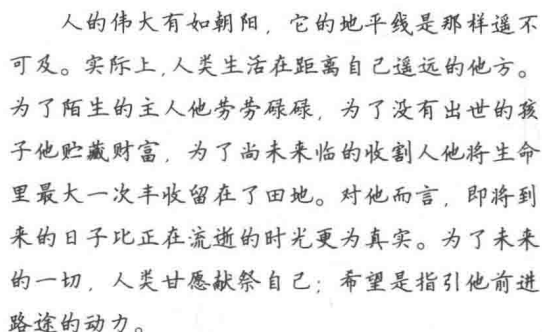 人的伟大有如朝阳，它的地平线是那样遥不
可及。实际上，人类生活在距离自己遥远的他方。
为了陌生的主人他劳劳碌碌，为了没有出世的孩
子他贮藏财富，为了尚未来临的收割人他将生命
里最大一次丰收留在了田地。对他而言，即将到
来的日子比正在流逝的时光更为真实。为了未来
的一切，人类甘愿献祭自己；希望是指引他前进
路途的动力。